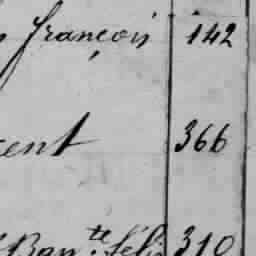 françois 142
cent 366
Bap.te féli 310